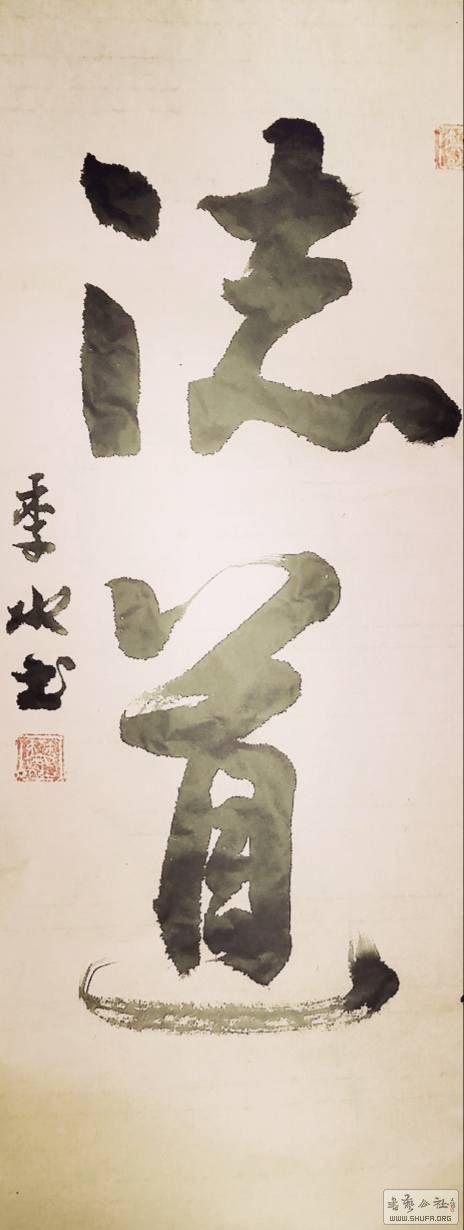 法道
季水书
書藝公社
WWW.SHUFA.ORG